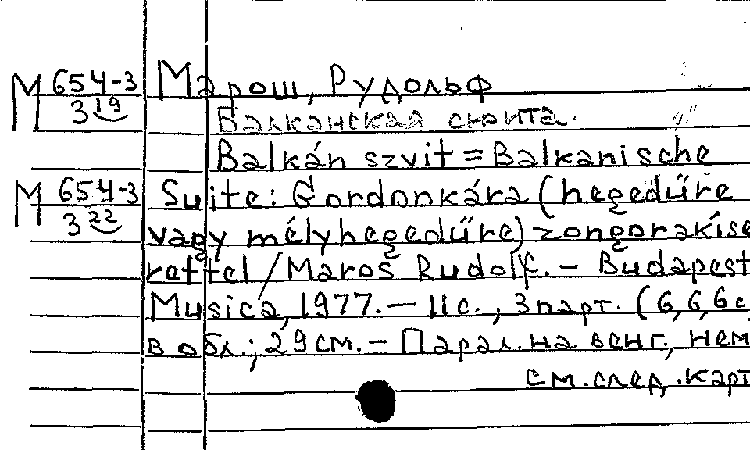 М 654-3
3 19
Марош, Рудольф
Балканская сюита.
Balkán szvit = Balkanische
М 654-3
3 22
Suite: Gordonkára (hegedűre
vagy mélyhegedűre) zongorakíse
rettel / Maros Rudolf. - Budapest
Musica, 1977. - 11с., 3 парт. (6,6,6с
в обл.; 29 см. - Парал. на венг., нем
см. след. карт